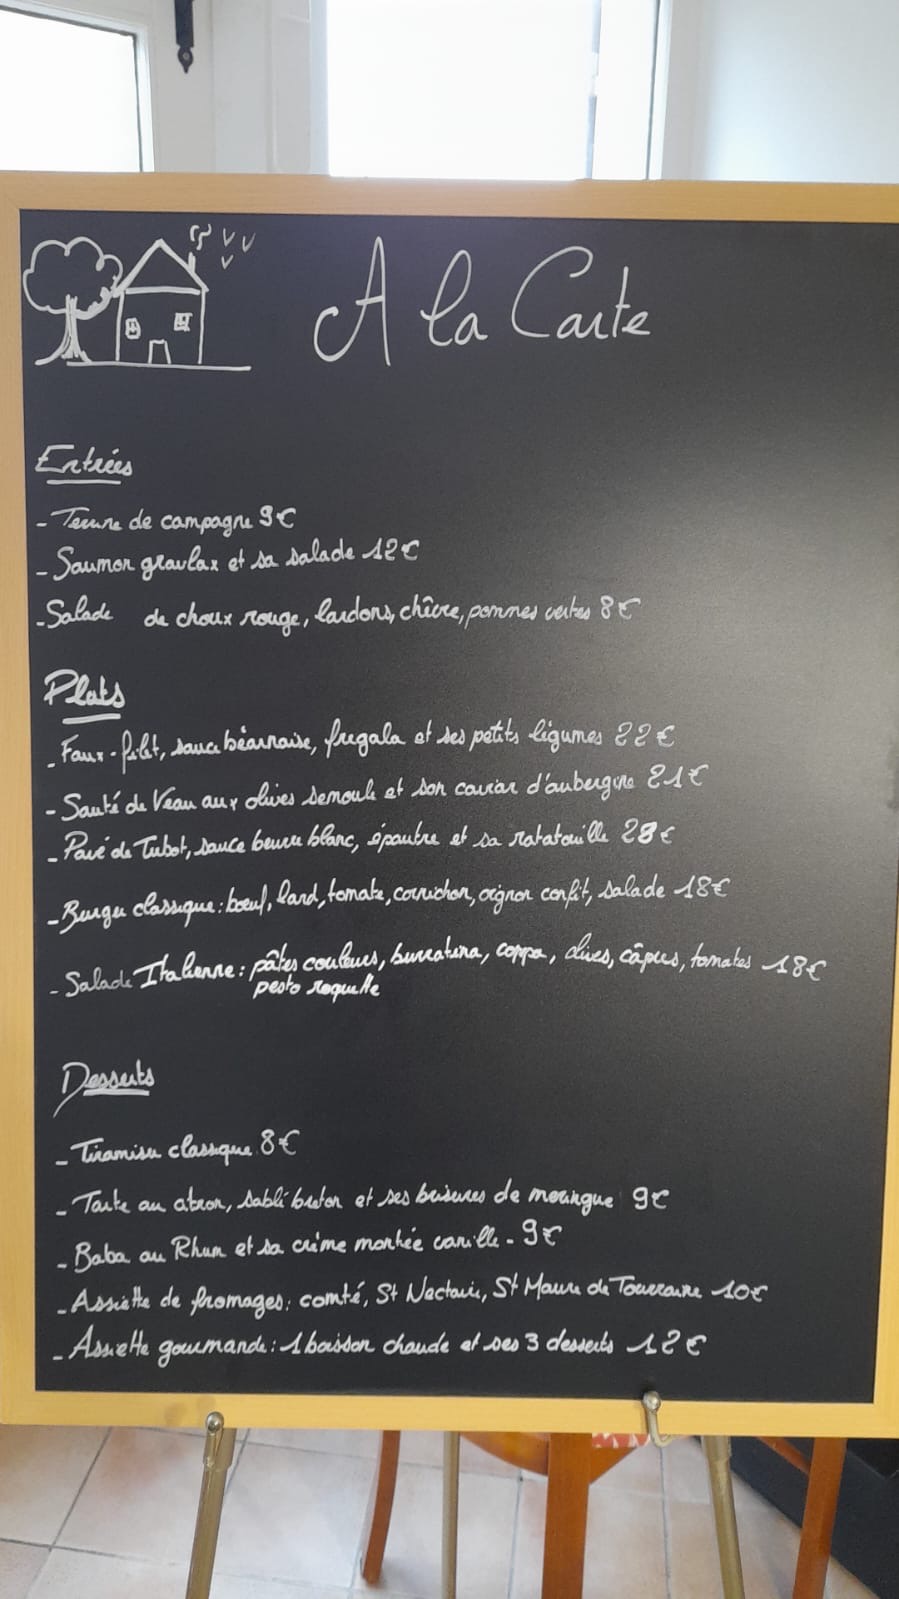 A la Carte
Entrées
- Terrine de campagne 9€
- Saumon gravlax et sa salade 12€
- Salade de choux rouge, lardons, chèvre, pommes vertes 8€
Plats
- Faux-filet, sauce béarnaise, fregala et ses petits légumes 22€
- Sauté de Veau aux olives semoule et son caviar d'aubergine 21€
- Pavé de Tubot, sauce beurre blanc, épeautre et sa ratatouille 28€
- Burger classique: boeuf, lard, tomate, cornichon, oignon confit, salade 18€
- Salade Italienne: pâtes couleurs, burratina, coppa, olives, câpres, tomates 18€
pesto roquette
Desserts
- Tiramisu classique 8€
- Tarte au citron, sablé breton et ses brisures de meringue 9€
- Baba au Rhum et sa crème montée vanille - 9€
- Assiette de fromages: comté, St Nectaire, St Maure de Touraine 10€
- Assiette gourmande: 1 boisson chaude et ses 3 desserts 12€